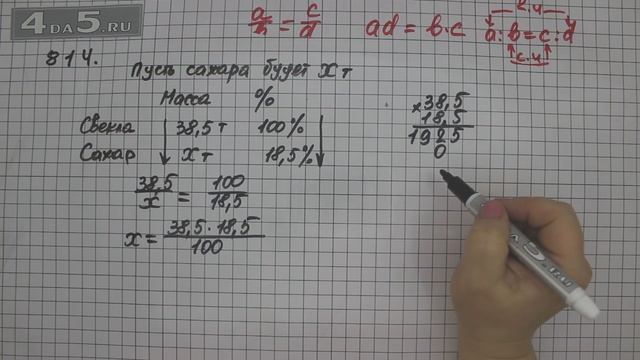 4DA5.RU
a/b = c/d ad = b·c к.ч. a:b=c:d
с.ч
814.
Пусть сахара будет X т
Масса %
Свекла 38,5 т 100%
Сахар X т 18,5%
38,5/x = 100/18,5
x = 38,5 · 18,5/100
×38,5
18,5
1925
0